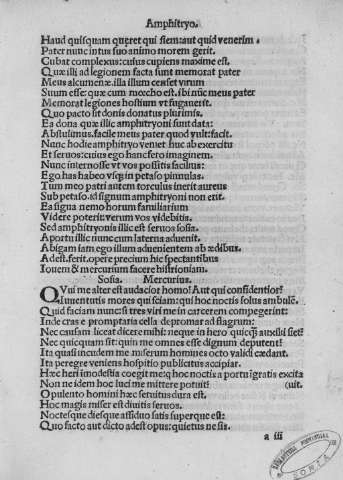 Amphitryo.
Haud quisquam quæret qui siem: aut quid venerim.
Pater nunc intus suo animo morem gerit.
Cubat complexus: cuius cupiens maxime est.
Quæ illi ad legionem facta sunt memorat pater
Meus alcumenæ. illa illum censet virum
Suum esse: quæ cum mœcho est. ibi nūc meus pater
Memorat legiones hostium vt fugauerit.
Quo pacto sit donis donatus plurimis.
Ea dona quæ illic amphitryoni sunt data:
Abstulimus. facile meus pater quod vult: facit.
Nunc hodie amphitryo veniet huc ab exercitu
Et seruos: cuius ego hanc fero imaginem.
Nunc internosse vt vos possitis facilius:
Ego has habeo vsq; in petaso pinnulas.
Tum meo patri autem torculus inerit aureus
Sub petaso. id signum amphitryoni non erit.
Ea signa nemo horum familiarium
Videre poterit: verum vos videbitis.
Sed amphitryonis illic est seruos sosia.
A portu illic nunc cum laterna aduenit.
Abigam iam ego illum aduenientem ab ædibus.
Adest. ferit. opere precium hic spectantibus
Iouem & mercurium facere histrioniam.
Sosia. Mercurius.
QVi me alter est audacior homo? Aut qui confidentior?
Iuuentutis mores qui sciam: qui hoc noctis solus ambulē.
Quid faciam nunc: si tres viri me in carcerem compegerint:
Inde cras e promptaria cella depromar ad flagrum:
Nec causam liceat dicere mihi: neque in hero quicq̄ auxilii siet?
Nec quicquam sit: quin me omnes esse dignum deputent?
Ita quasi incudem me miserum homines octo validi cædant.
Ita peregre veniens hospitio publicitus accipiar.
Hæc heri imodestia coegit me: q hoc noctis a portu īgratis excita
Non ne idem hoc luci me mittere potuit? (uit.
Opulento homini hæc seruitus dura est.
Hoc magis miser est diuitis seruos.
Noctesque diesque assiduo satis superque est:
Quo facto aut dicto adest opus: quietus ne sis.
a iii
BIBLIOTECA PROVINCIAL
SORIA